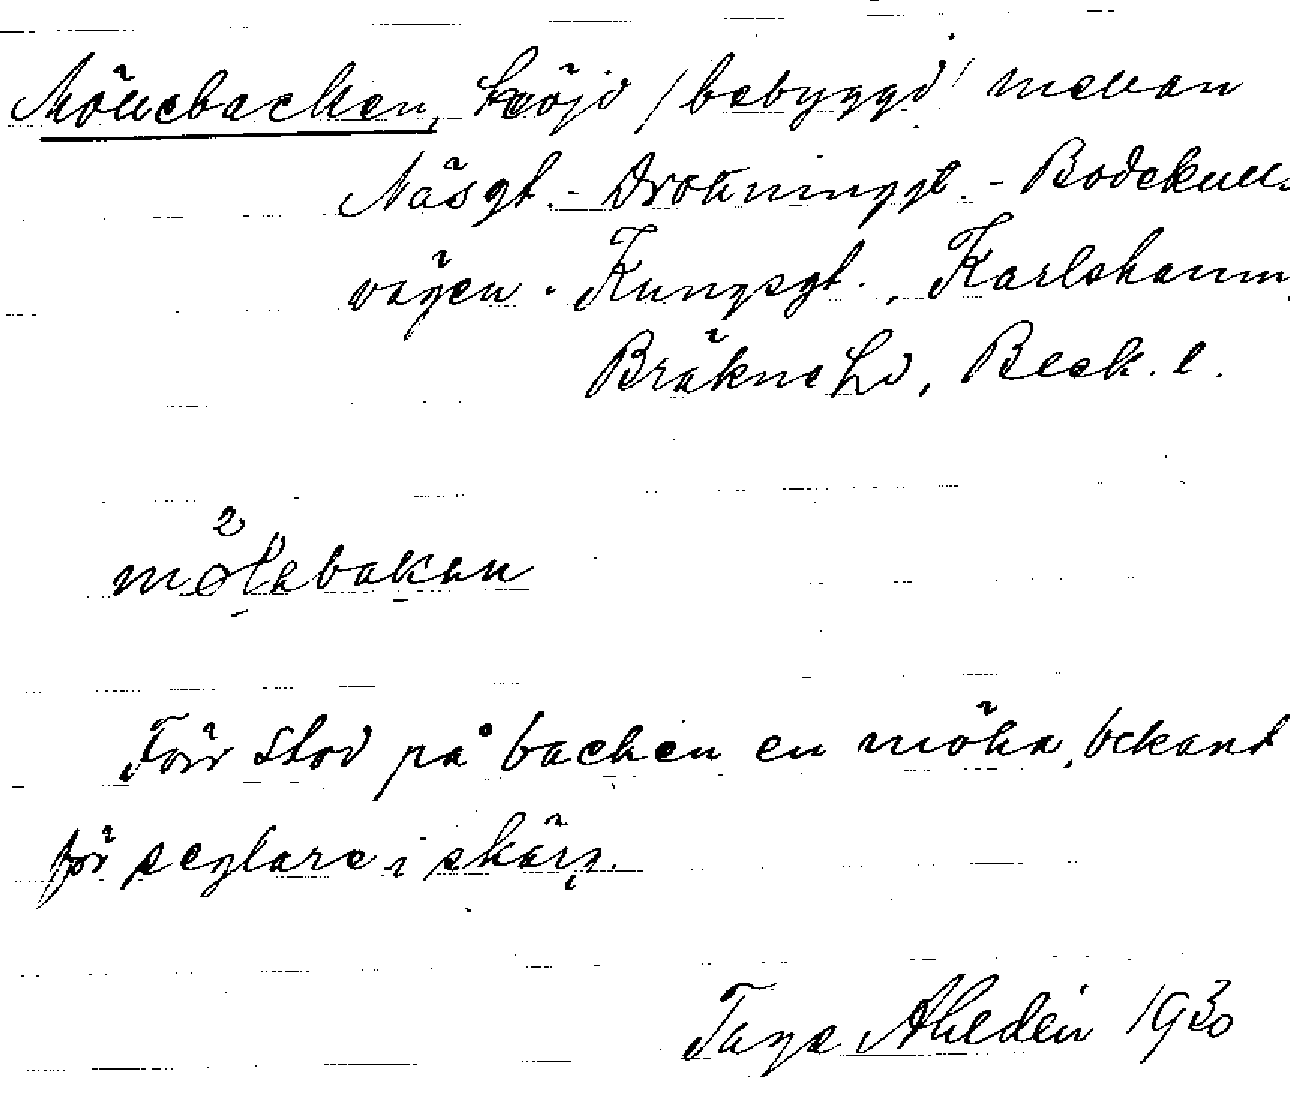 Möllebacken, höjd /bebyggd/ mellan
Näsgt. - Drottninggt. - Bodekulls-
vägen - Kungsgt., Karlshamn,
Bräkne hd, Bleck. l.
mölabakan
Förr stod på backen en mölla, bekant
för seglare i skärg.
Tage Ahldén 1930